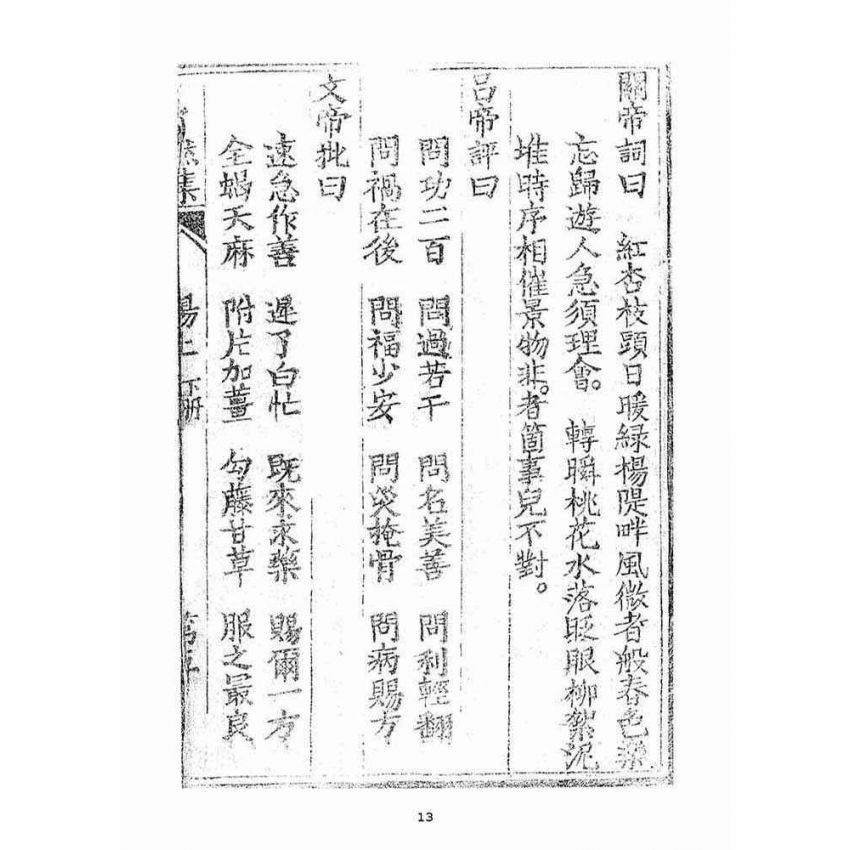 關帝詞曰　紅杏枝頭日暖綠楊隄畔風微者般春色樂
忘歸遊人急須理會。　轉瞬桃花水落眨眼柳絮泥
堆時序相催景物非。者箇事兒不對。
呂帝評曰
問功二百　問過若干　問名美善　問利輕翻
問禍在後　問福少安　問災掩骨　問病賜方
文帝批曰
速急作善　遲了白忙　既來求藥　賜爾一方
全蝎天麻　附片加薑　勾藤甘草　服之最良
集　下册　第五
13